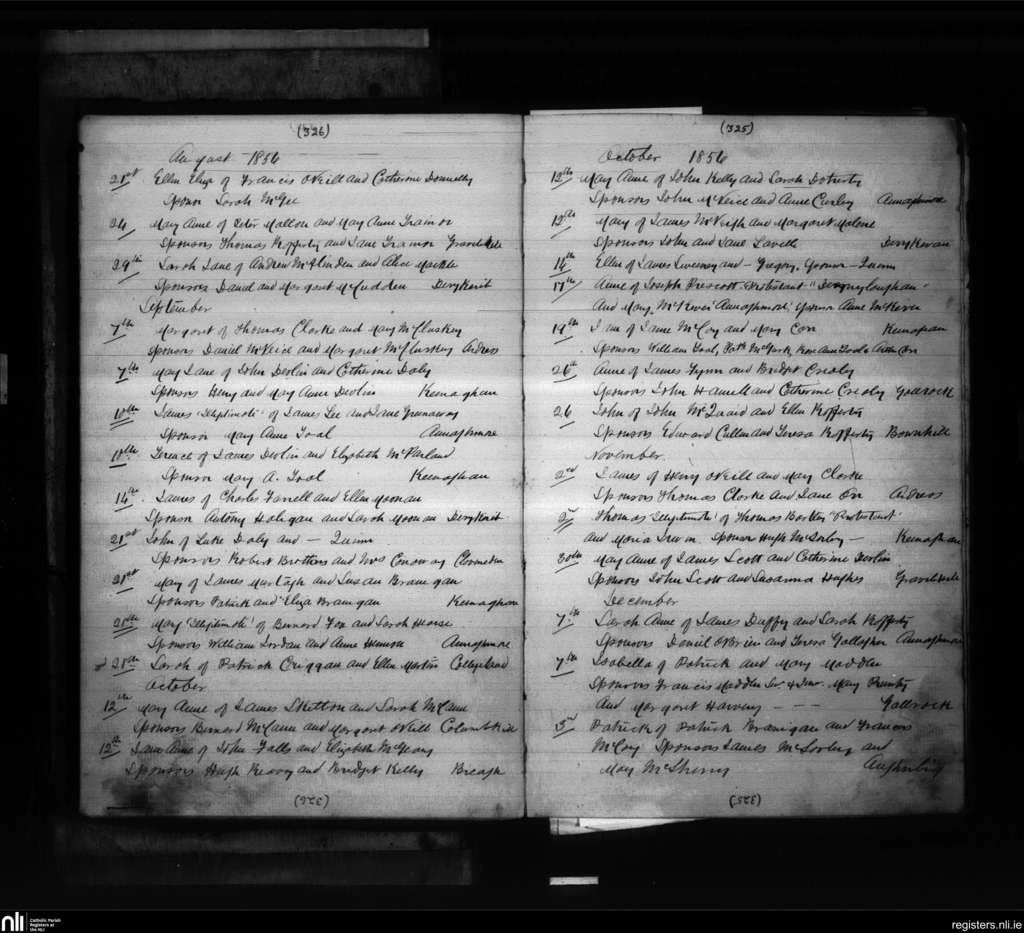 (326)
August 1856
21st Ellen Eliza of Francis O'Neill and Catherine Donnelly
Sponsor Sarah McGee
24 Mary Anne of Peter Mallon and May Anne Trainor
Sponsors Thomas Rafferty and Jane Trainor
29th Sarah Jane of Andrew and Alice Mackle
Sponsors Daniel and Margaret Derykerit
September
7th Margaret of Thomas Clarke and Mary McCluskey
Sponsors Daniel McVeice and Margaret McCluskey Ardress
7th May Jane of John Devlin and Catherine Daly
Sponsors Henry and May Anne Devlin Keenaghan
10th James "Illegitimate" of James Lee and Jane Greenaway
Sponsor May Anne Tool Annaghmore
10th of James Devlin and Elizabeth McParland
Sponsor May A. Tool Keenaghan
14th James of Charles Farrell and Ellen Moonan
Sponsor Antony Haligan and Sarah Moonan Derykerit
21st John of Luke Daly and — Quinn
Sponsors Robert Brothers and Mrs Conway
21st May of James Murtagh and Susan Branigan
Sponsors Patrick and Eliza Branigan Keenaghan
20th Mary 'Illegitimate' of Bernard Fox and Sarah
Sponsors William Jordan and Anne Annaghmore
28th Sarah of Patrick and Ellen Martin Collegeland
October
12th May Anne of James Skelton and Sarah McCann
Sponsors Bernard McCann and Margaret O'Neill
12th Anne of John Falls and Elizabeth McGeary
Sponsors Hugh and Bridget Kelly Breagh
(326)
(325)
October 1856
12th May Anne of John Kelly and Sarah Doherty
Sponsors John McVeice and Anne Curley Annaghmore
12th Mary of James McVeigh and Margaret Malone
Sponsors John and Jane Lavell
14th Ellen of James Sweeney and — Gregory Sponsor — Quinn
17th Anne of Joseph Prescott "Protestant"
And May McKever 'Annaghmore' Sponsor Anne McKever
19th of Jame McCoy and Mary Corr Keenaghan
Sponsors William Tool, McGurk, Rose Ann Tool &
26th Anne of James Flynn and Bridget Crealy
Sponsors John Hamill and Catherine Crealy
26 John of John McQuaid and Ellen Rafferty
Sponsors Edward Cullen and Teresa Rafferty
November
2nd James of Henry O'Neill and May Clarke
Sponsors Thomas Clarke and Jane Orr Ardress
2nd Thomas 'Illegitimate' of Thomas "Protestant"
and Maria Sponsor Hugh McSorley — Keenaghan
30th May Anne of James Scott and Catherine Devlin
Sponsors John Scott and Susanna Hughes
December
7th Sarah Anne of James Duffy and Sarah Rafferty
Sponsors Daniel O'Brien and Teresa Gallagher Annaghmore
7th Isabella of Patrick and Mary Madden
Sponsors Francis Madden Sr. & Junr. Mary
And Margaret — — —
3rd Patrick of Patrick Branigan and Frances
McCoy Sponsors James McSorley and
May McSherry
(325)
nli
Catholic Parish
Registers at
the NLI
registers.nli.ie